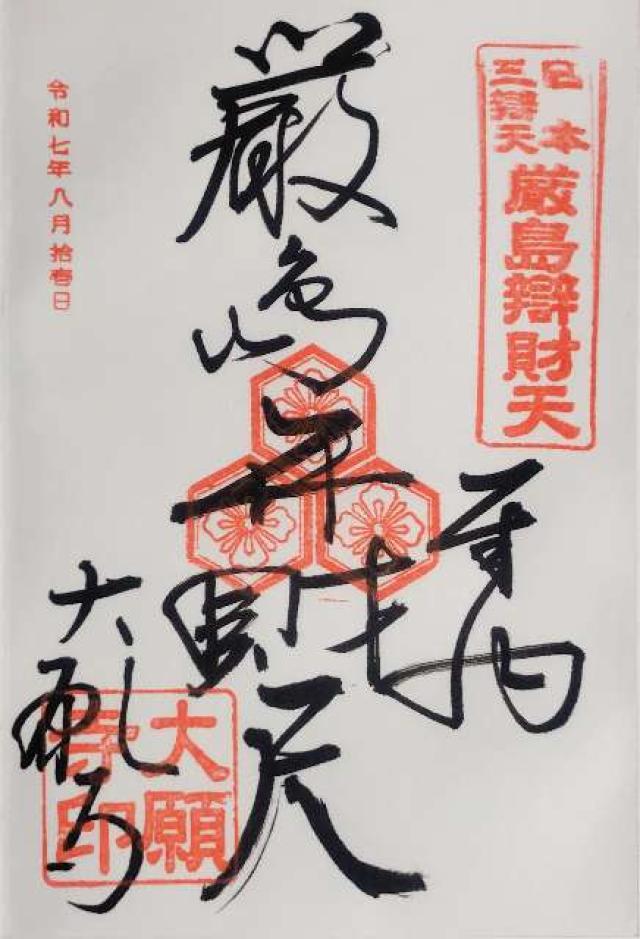 日本
三辯天
厳島辯財天
奉拝
厳嶋弁財天
大願寺
大願
寺印
令和七年八月拾壱日